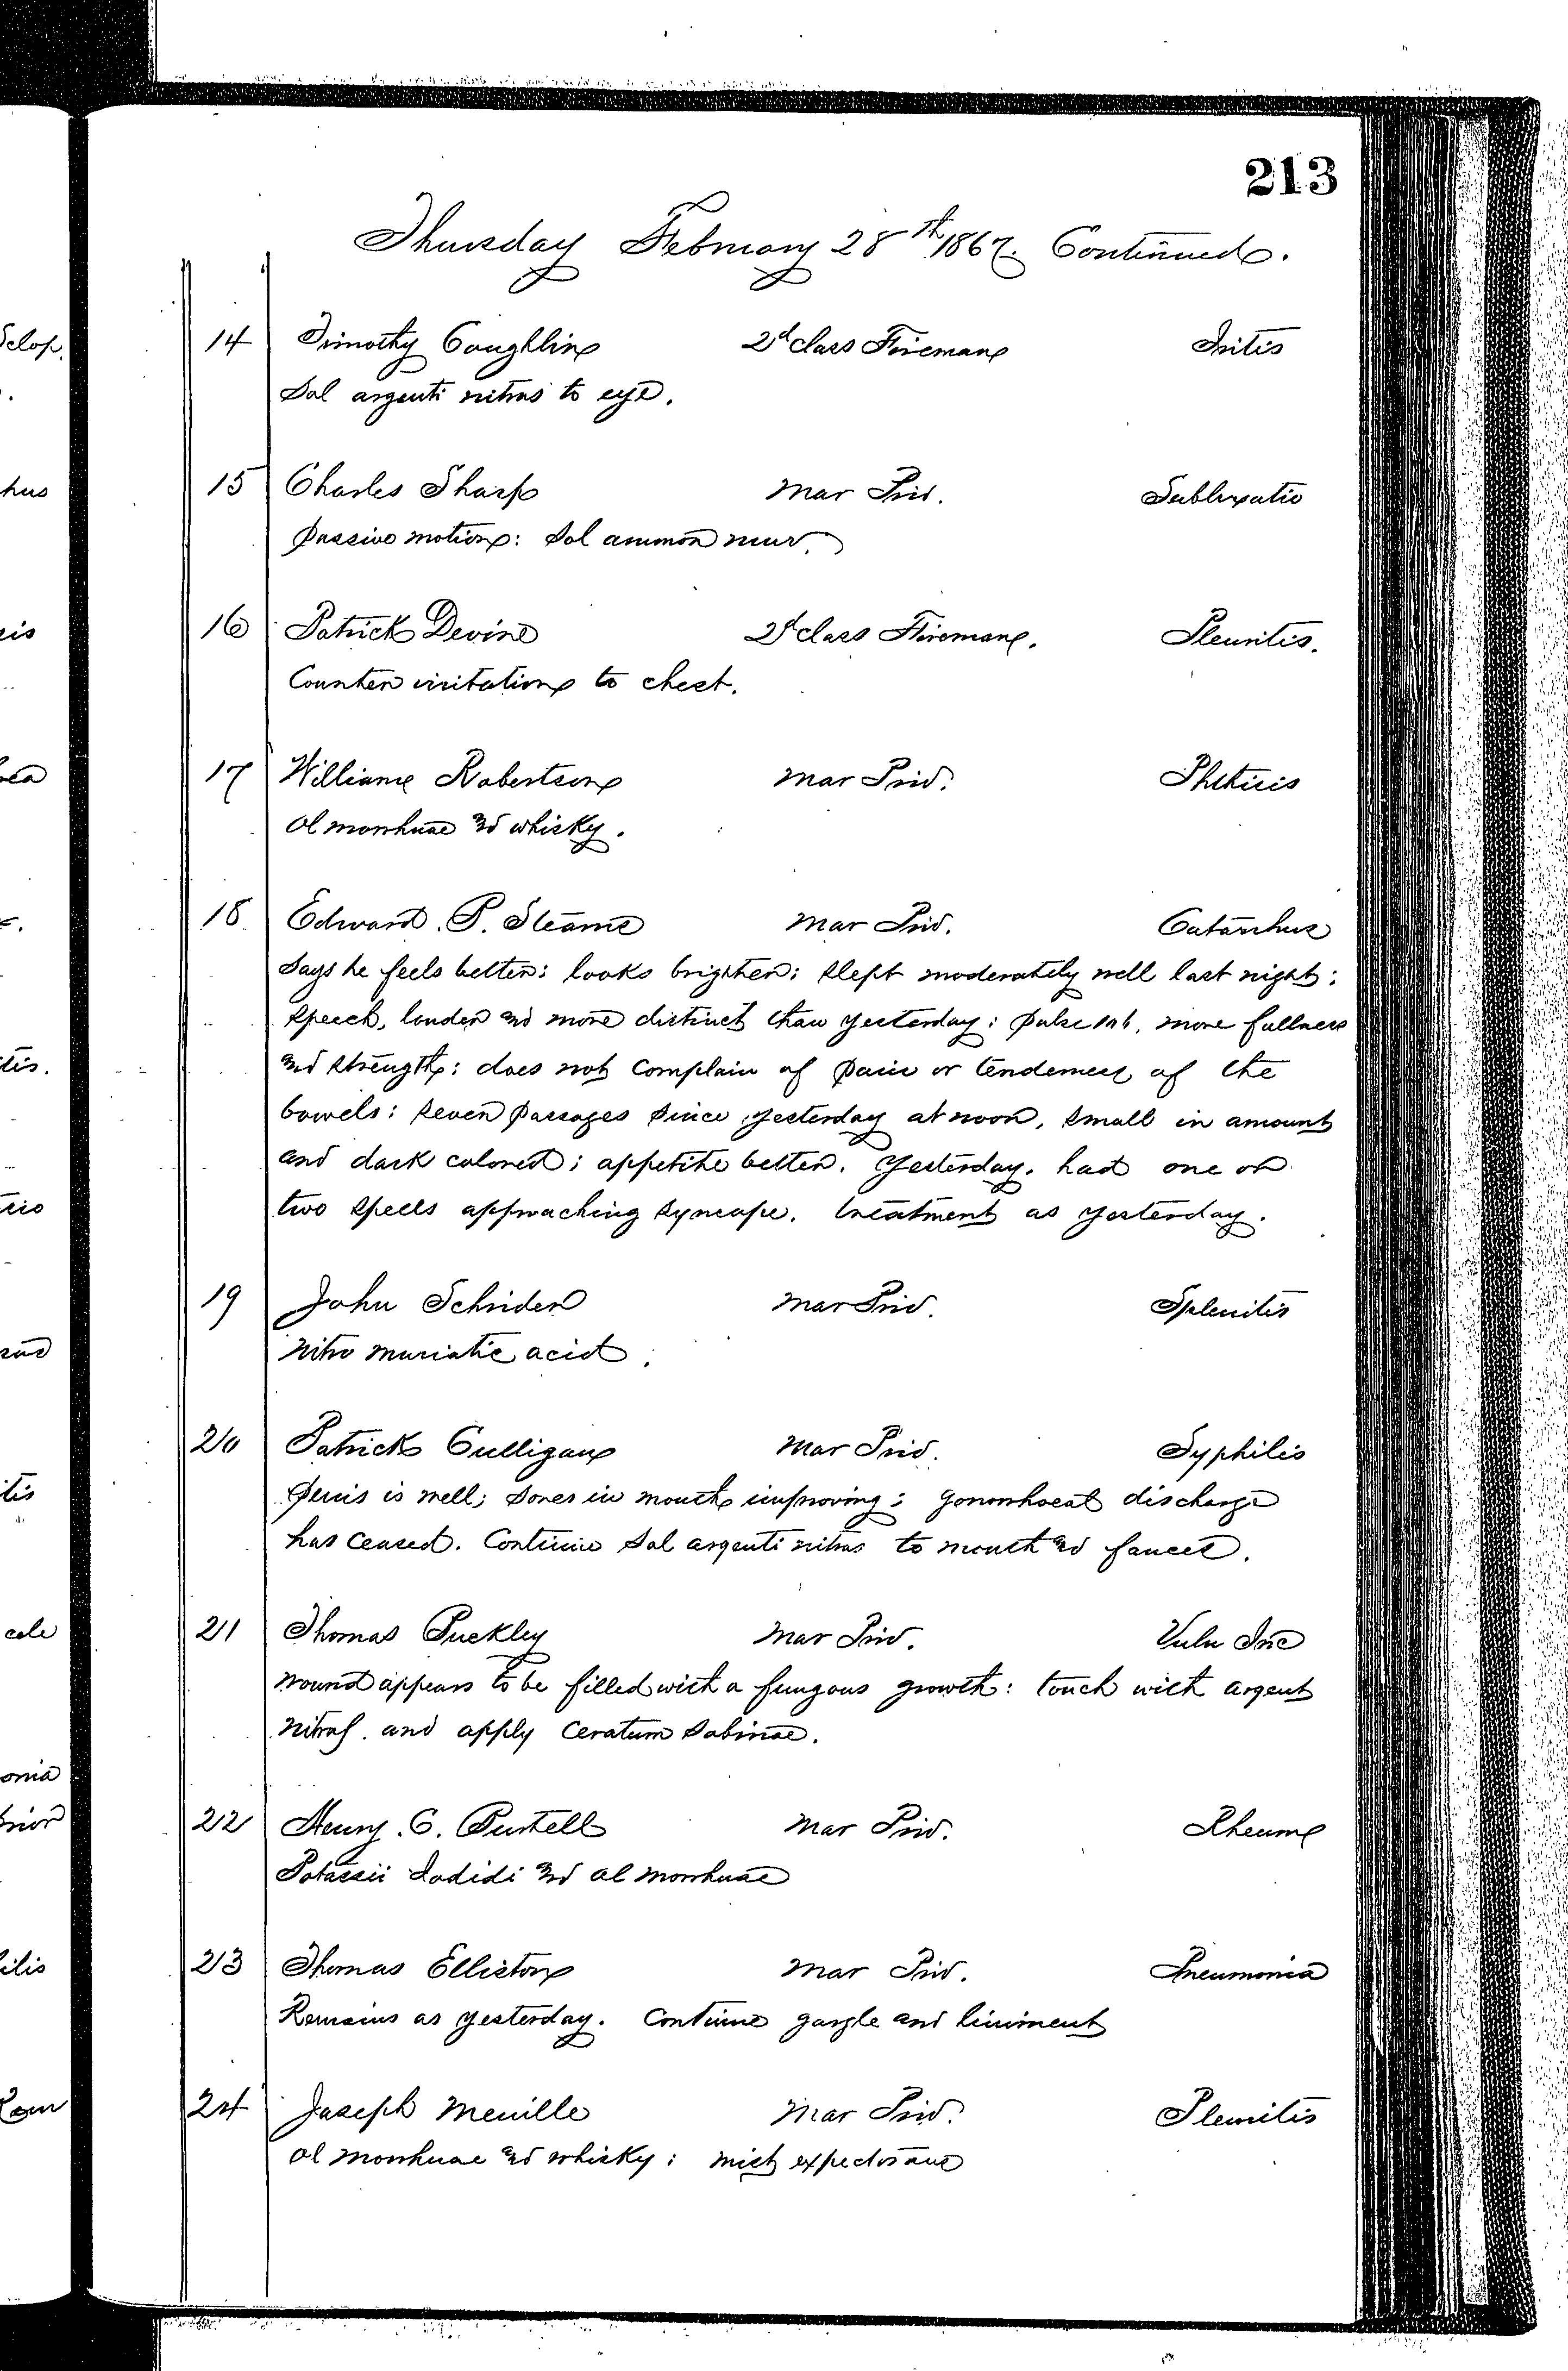 213
Thursday February 28th 1867. Continued.
14 Timothy Coughlin 2d class Fireman Iritis
Sol argenti nitras to eye.
15 Charles Sharp Mar Priv. Subluxatio
passive motion: Sol ammon mur.
16 Patrick Devine 2d class Fireman. Pleuritis.
Counter irritation to chest.
17 William Robertson Mar Priv. Phthisis
Ol morrhuae and whisky.
18 Edward. P. Stearne Mar Priv. Catarrhus
Says he feels better: looks brighter: slept moderately well last night:
speech, louder and more distinct than yesterday: pulse more fullness
and strength: does not complain of pain or tenderness of the
bowels: seven passages since yesterday at noon, small in amount
and dark colored; appetite better. Yesterday. had one or
two spells approaching syncope. treatment as yesterday.
19 John Schrider Mar Priv. Splenitis
Nitro muriatic acid.
20 Patrick Culligan Mar Priv. Syphilis
Penis is well; sores in mouth improving: gonorrhoeal discharge
has ceased. Continue Sol argenti nitras to mouth and fauces.
21 Thomas Puckley Mar Priv. Vuln Inc
Wound appears to be filled with a fungous growth: touch with argent
nitras. and apply Ceratum Sabinae.
22 Henry. C. Purtell Mar Priv. Rheum
Potassii Iodidi and ol morrhuae
23 Thomas Elliston Mar Priv. Pneumonia
Remains as yesterday. Continue gargle and liniment
24 Joseph Meville Mar Priv. Pleuritis
Ol morrhuae and whisky: mist expectorant